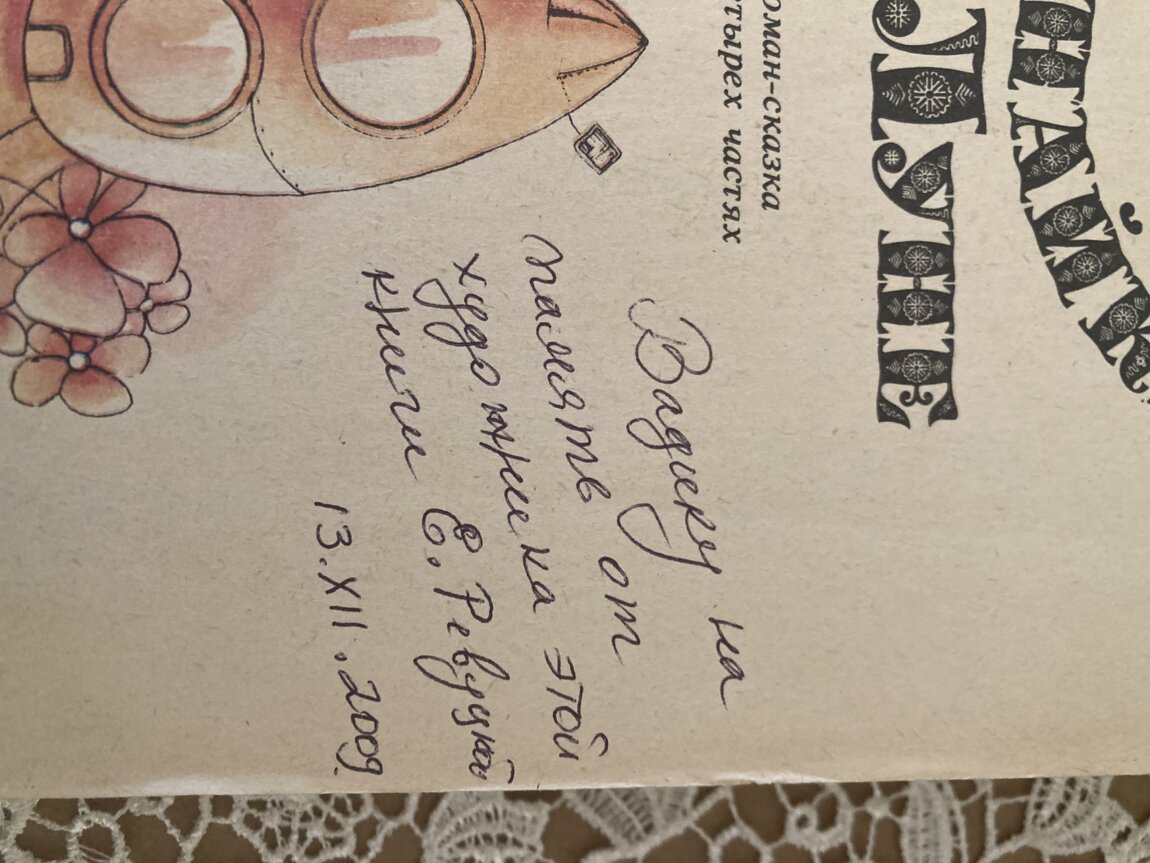 НАЙК
ЛУНЕ
оман-сказка
тырех частях
Вадику на
память от
художника этой
книги Е. Ревуцкой
13.XII.2009